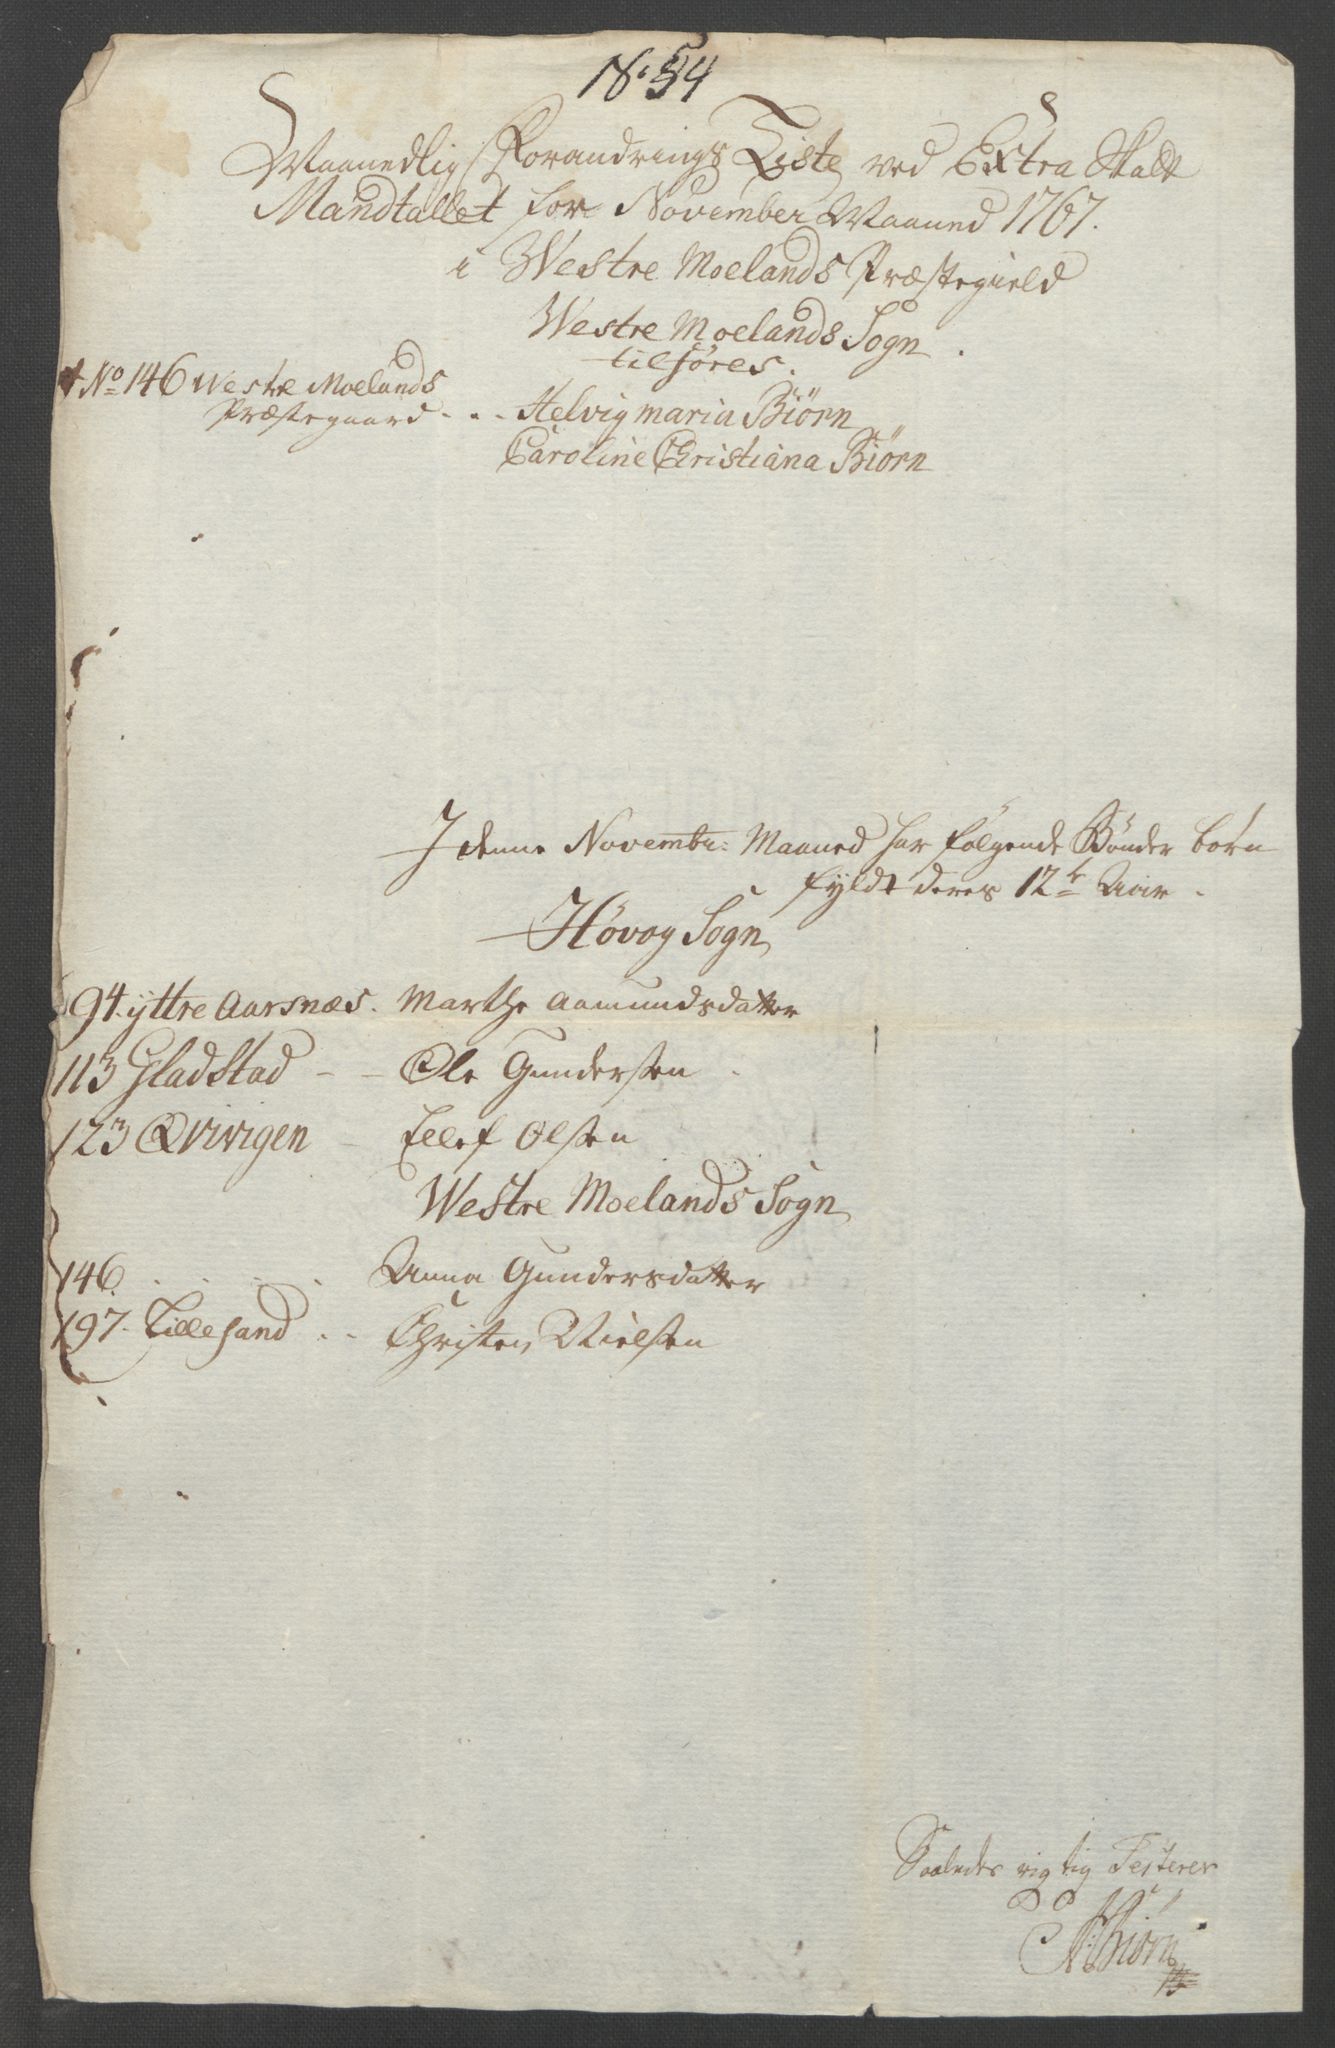 N: 54
Maanedlig Forandrings Liste ved Extra Skatt
Mandtallet for November Maaned 1767.
i Westre Moelands Præstegield
Westre Moelands Sogn.
tilføres.
No 146 Westre Moelands
Præstegaard - - - Helvig maria Biörn
Caroline Christiana Biörn
I denne Novembr: Maaned har følgende Bønder børn
fyldt deres 12te Aar.
Høvog Sogn
94. yttre Aarsnæs. Marthe Aamundsdatter
113 Gladstad - - Ole Gundersen.
123 Qvivigen - Ellef Olsen
Westre Moelands Sogn
146. . . . Anna Gundersdatter
197. Lillesand . . Christen Nielsen
Saaledes rigtig Testerer
Biörn